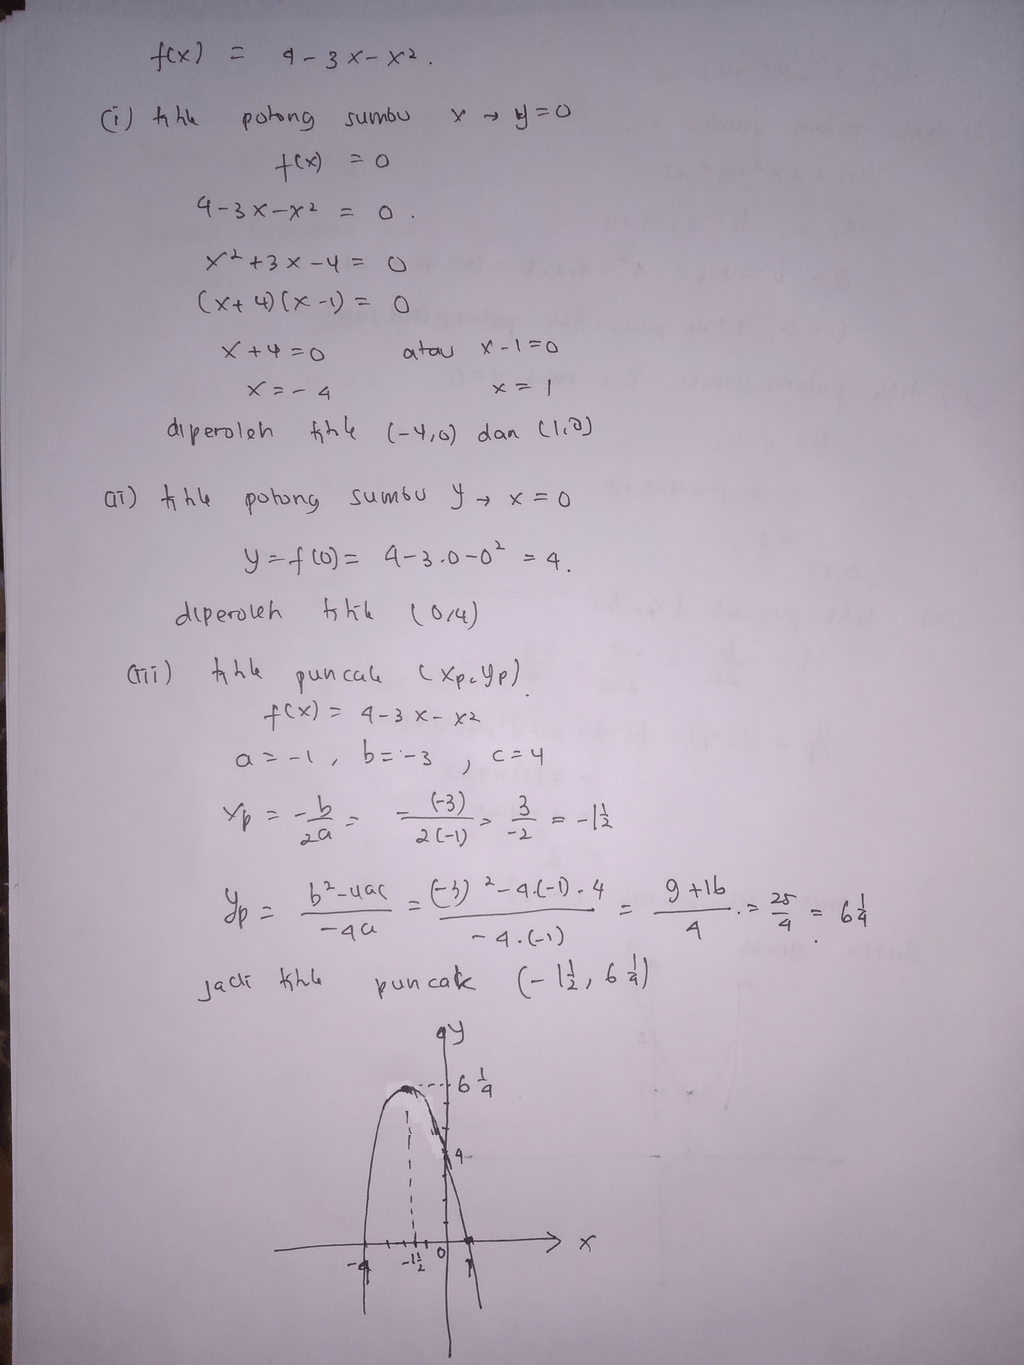 f(x) = 4-3x-x².
(i) titik potong sumbu x → y=0
f(x) = 0
4-3x-x² = 0.
x²+3x-4 = 0
(x+4)(x-1) = 0
x+4=0 atau x-1=0
x=-4 x=1
diperoleh titik (-4,0) dan (1,0)
(ii) titik potong sumbu y → x=0
y=f(0)= 4-3.0-0² = 4.
diperoleh titik (0,4)
(iii) titik puncak (xp,yp)
f(x) = 4-3x-x²
a=-1, b=-3, c=4
xp = -b/2a = -(-3)/2(-1) = 3/-2 = -1½
yp = b²-4ac/-4a = (-3)²-4.(-1).4/-4.(-1) = 9+16/4 = 25/4 = 6¼
jadi titik puncak (-1½, 6¼)
y
6¼
4
-4 -1½ 0 1 x